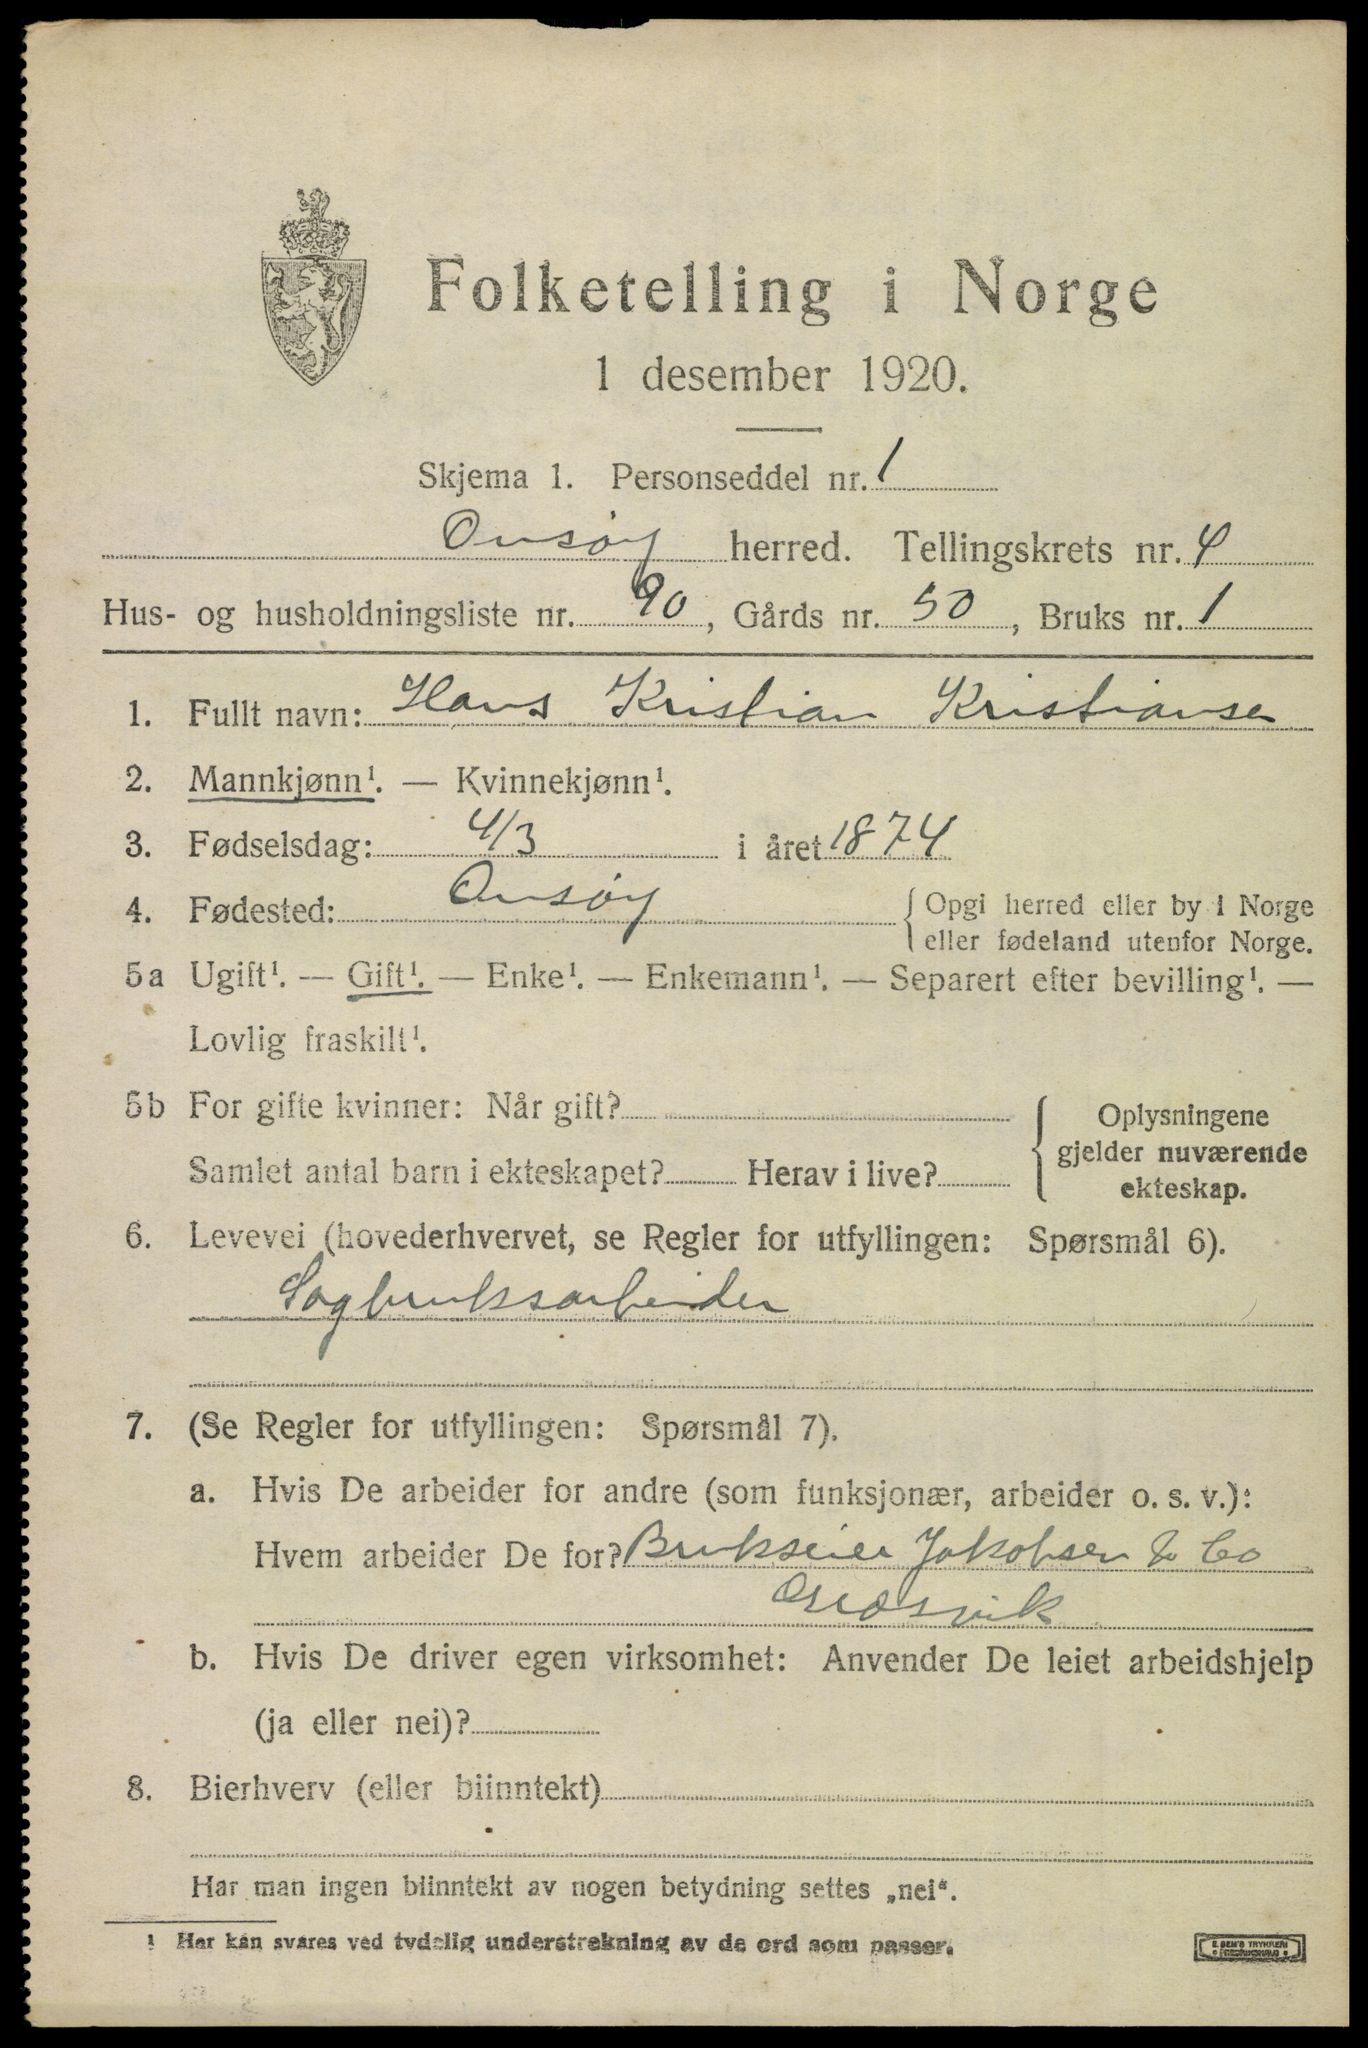 Folketelling i Norge
1 desember 1920.
Skjema 1. Personseddel nr. 1
Onsøy herred. Tellingskrets nr. 4
Hus- og husholdningsliste nr. 90, Gårds nr. 50, Bruks nr. 1
1. Fullt navn: Hans Kristian Kristiansen
2. Mannkjønn¹. — Kvinnekjønn¹.
3. Fødselsdag: 4/3 i året 1874
4. Fødested: Onsøy { Opgi herred eller by i Norge
eller fødeland utenfor Norge.
5a Ugift¹. — Gift¹. — Enke¹. — Enkemann¹. — Separert efter bevilling¹. —
Lovlig fraskilt¹.
5b For gifte kvinner: Når gift?
Samlet antal barn i ekteskapet? Herav i live?
{ Oplysningene
gjelder nuværende
ekteskap.
6. Levevei (hovederhvervet, se Regler for utfyllingen: Spørsmål 6).
Sagbruksarbeider
7. (Se Regler for utfyllingen: Spørsmål 7).
a. Hvis De arbeider for andre (som funksjonær, arbeider o. s. v.):
Hvem arbeider De for? Brukseier Jakobsen & Co
b. Hvis De driver egen virksomhet: Anvender De leiet arbeidshjelp
(ja eller nei)?
8. Bierhverv (eller biinntekt)
Har man ingen biinntekt av nogen betydning settes „nei“.
¹ Her kan svares ved tydelig understrekning av de ord som passer.
E. SEM'S TRYKKERI
FREDRIKSHALD